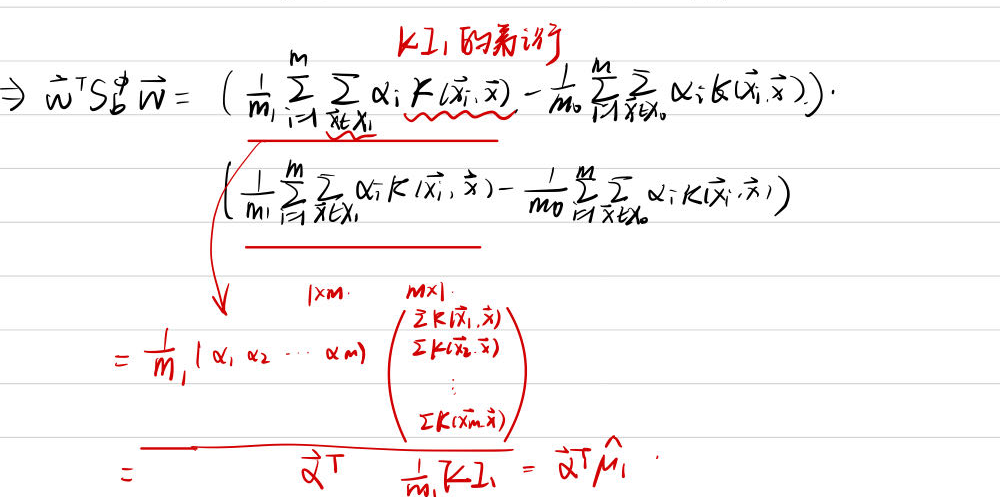 K𝟙₁ 的第i行
⇒ w⃗ᵀ S_b^ϕ w⃗ = ( 1/m₁ Σ_{i=1}^{m} Σ_{x⃗∈X₁} αᵢ K(x⃗ᵢ, x⃗) − 1/m₀ Σ_{i=1}^{m} Σ_{x⃗∈X₀} αᵢ K(x⃗ᵢ, x⃗) ) ·
( 1/m₁ Σ_{i=1}^{m} Σ_{x⃗∈X₁} αᵢ K(x⃗ᵢ, x⃗) − 1/m₀ Σ_{i=1}^{m} Σ_{x⃗∈X₀} αᵢ K(x⃗ᵢ, x⃗) )
1×m. m×1.
ΣK(x⃗₁, x⃗)
= 1/m₁ ( α₁ α₂ ⋯ αm ) ΣK(x⃗₂, x⃗)
⋮
ΣK(x⃗m, x⃗)
= α⃗ᵀ 1/m₁ K𝟙₁ = α⃗ᵀ μ̂₁ .